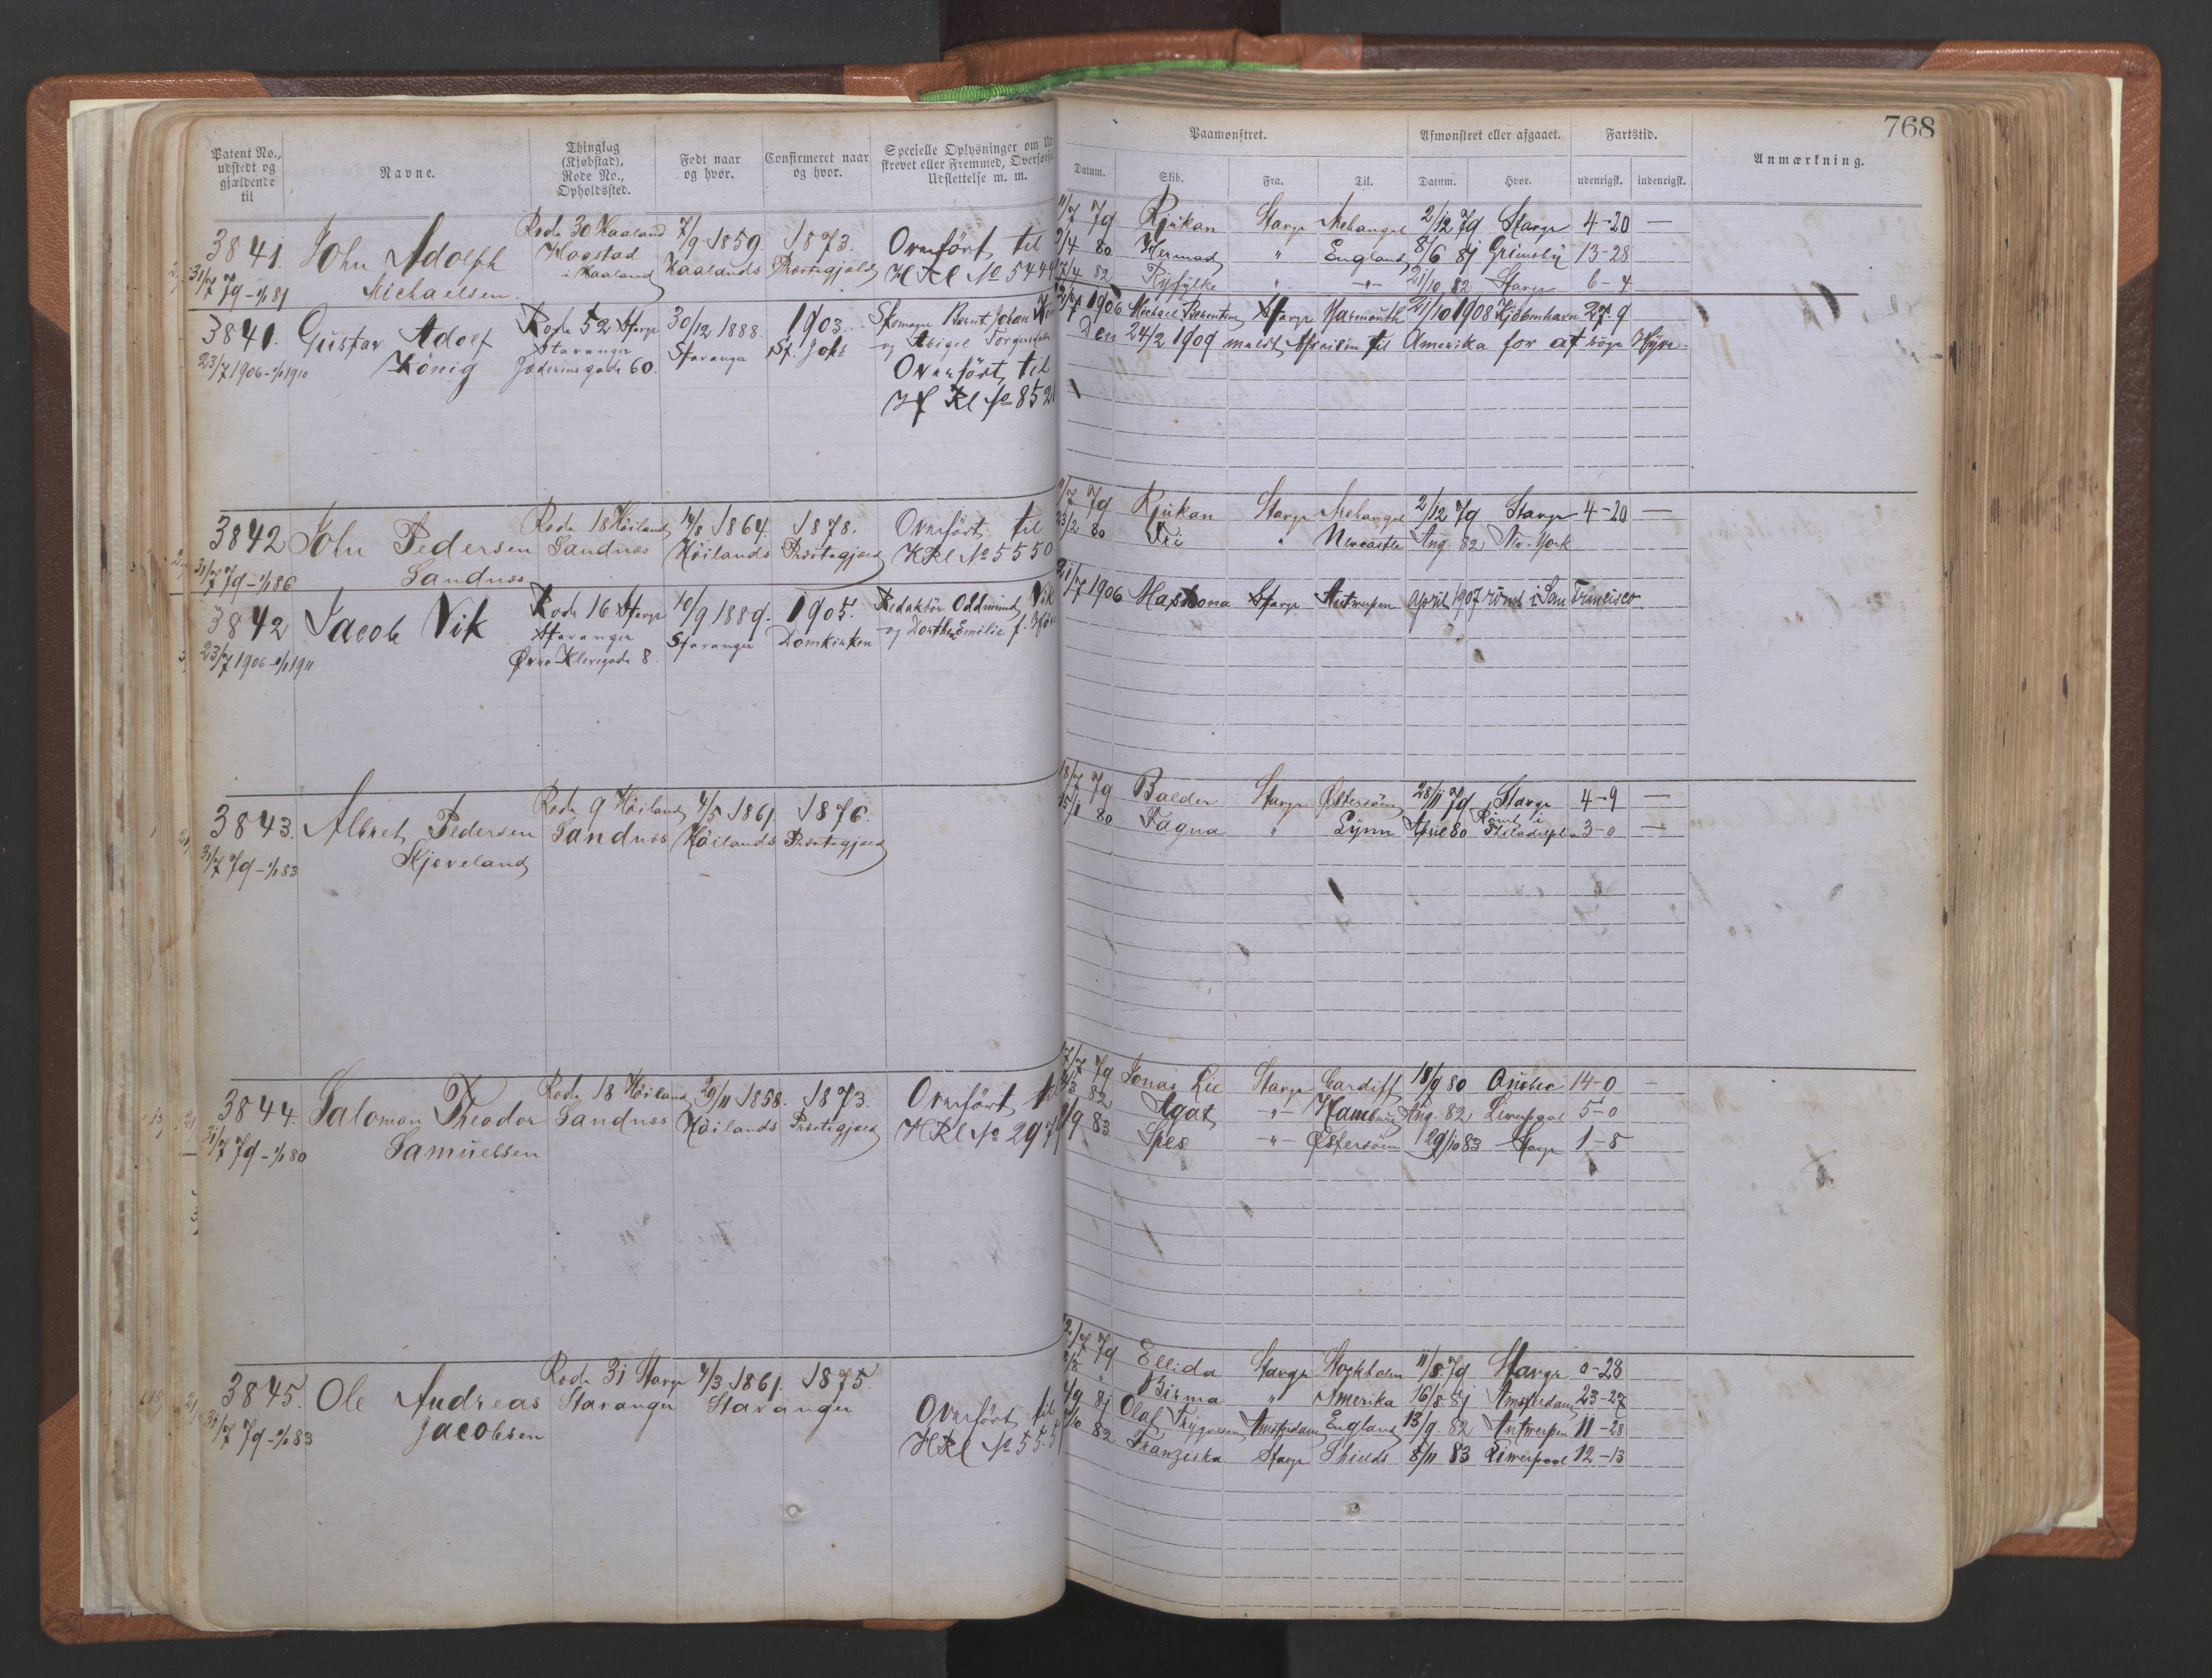 768
Patent No., udstedt og gjældende til
Navne.
Thinglag (Kjøbstad), Rode No., Opholdssted.
Født naar og hvor.
Confirmeret naar og hvor.
Specielle Oplysninger om
skrevet eller Fremmed,
Udslettelse m. m.
Paamønstret.
Afmønstret eller afgaaet.
Fartstid.
Anmærkning.
Datum.
Skib.
Fra.
Til.
Datum.
Hvor.
udenrigsk.
indenrigsk.
3841. John Adolph Michaelsen
31/7 79 - 1/1 81
Rode 30 Haaland
Hogstad i Haaland
7/9 1859. Haalands Præstegjæld
1873.
Overført til HKl No 544
11/7 79 Rjukan Stavgr Archangel 2/12 79 Stavgr 4-20 —
80 Hermod " England 8/6 81 Grimsby 13-28
82 Ryfylke " -"- 21/10 82 Stavgr 6-4
3841. Gustav Adolf König
23/7 1906 - 1/1 1910
Rode 52 Stavgr
Stavanger
Jæderensgade 60.
30/12 1888. Stavanger
1903. St. Joh
Skomager Bernt Johan
og Abigel Torgersdatter
Overført til
Kl No 852
1906 Michael Berentsen Stavgr Yarmouth 21/10 1908 Kjøbenhavn 27-9
Den 24/2 1909 meldt Afreisen til Amerika for at søge Hyre.
3842 John Pedersen Sandnæs
31/7 79 - 1/1 86
Rode 18 Høiland
Sandnæs
14/8 1864. Høilands Præstegjæld
1878.
Overført til HKl No 5550
11/7 79 Rjukan Stavgr Archangel 2/12 79 Stavgr 4-20 —
23/2 80 Fri " Newcastle Aug. 82 New-York
3842 Jacob Vik
23/7 1906 - 1/1 1911
Rode 16 Stavgr
Stavanger
Øvre Klevegade 8.
10/9 1889. Stavanger
1905. Domkirken
Redaktør Oddmund Vik
og Dorthea Emilie f.
21/7 1906 Stavgr Antwerpen April 1907 rømt i San Francisco
3843. Albret Pedersen Skjæveland
31/7 79 - 1/1 83
Rode 9 Høiland
Sandnæs
4/5 1861. Høilands Præstegjæld
1876.
18/7 79 Balder Stavgr Østersøen 28/11 79 Stavgr 4-9 —
15/1 80 Fagna " Lynn April 80 Rømt i Philadelphia 3-0 —
3844. Salomon Theodor Samuelsen
31/7 79 - 1/1 80
Rode 18 Høiland
Sandnæs
29/11 1858. Høilands Præstegjæld
1873.
Overført til
HKl No 297
17/7 79 Jonas Lie Stavgr Cardiff 18/9 80 Quebec 14-0 —
82 Agat -"- Hamburg Aug. 82 Liverpool 5-0
83 Spes -"- Østersøen 29/10 83 Stavgr 1-8
3845. Ole Andreas Jacobsen
31/7 79 - 1/1 83
Rode 31 Stavgr
Stavanger
4/3 1861. Stavanger
1875.
Overført til
HKl No 555
79 Ellida Stavgr Stockholm 11/8 79 Stavgr 0-28
" Birma " Amerika 16/8 81 Amsterdam 23-27
81 Olaf Trygvesen Amsterdam England 13/9 82 Antwerpen 11-28
82 Franziska Stavgr Shields 8/11 83 Liverpool 12-13